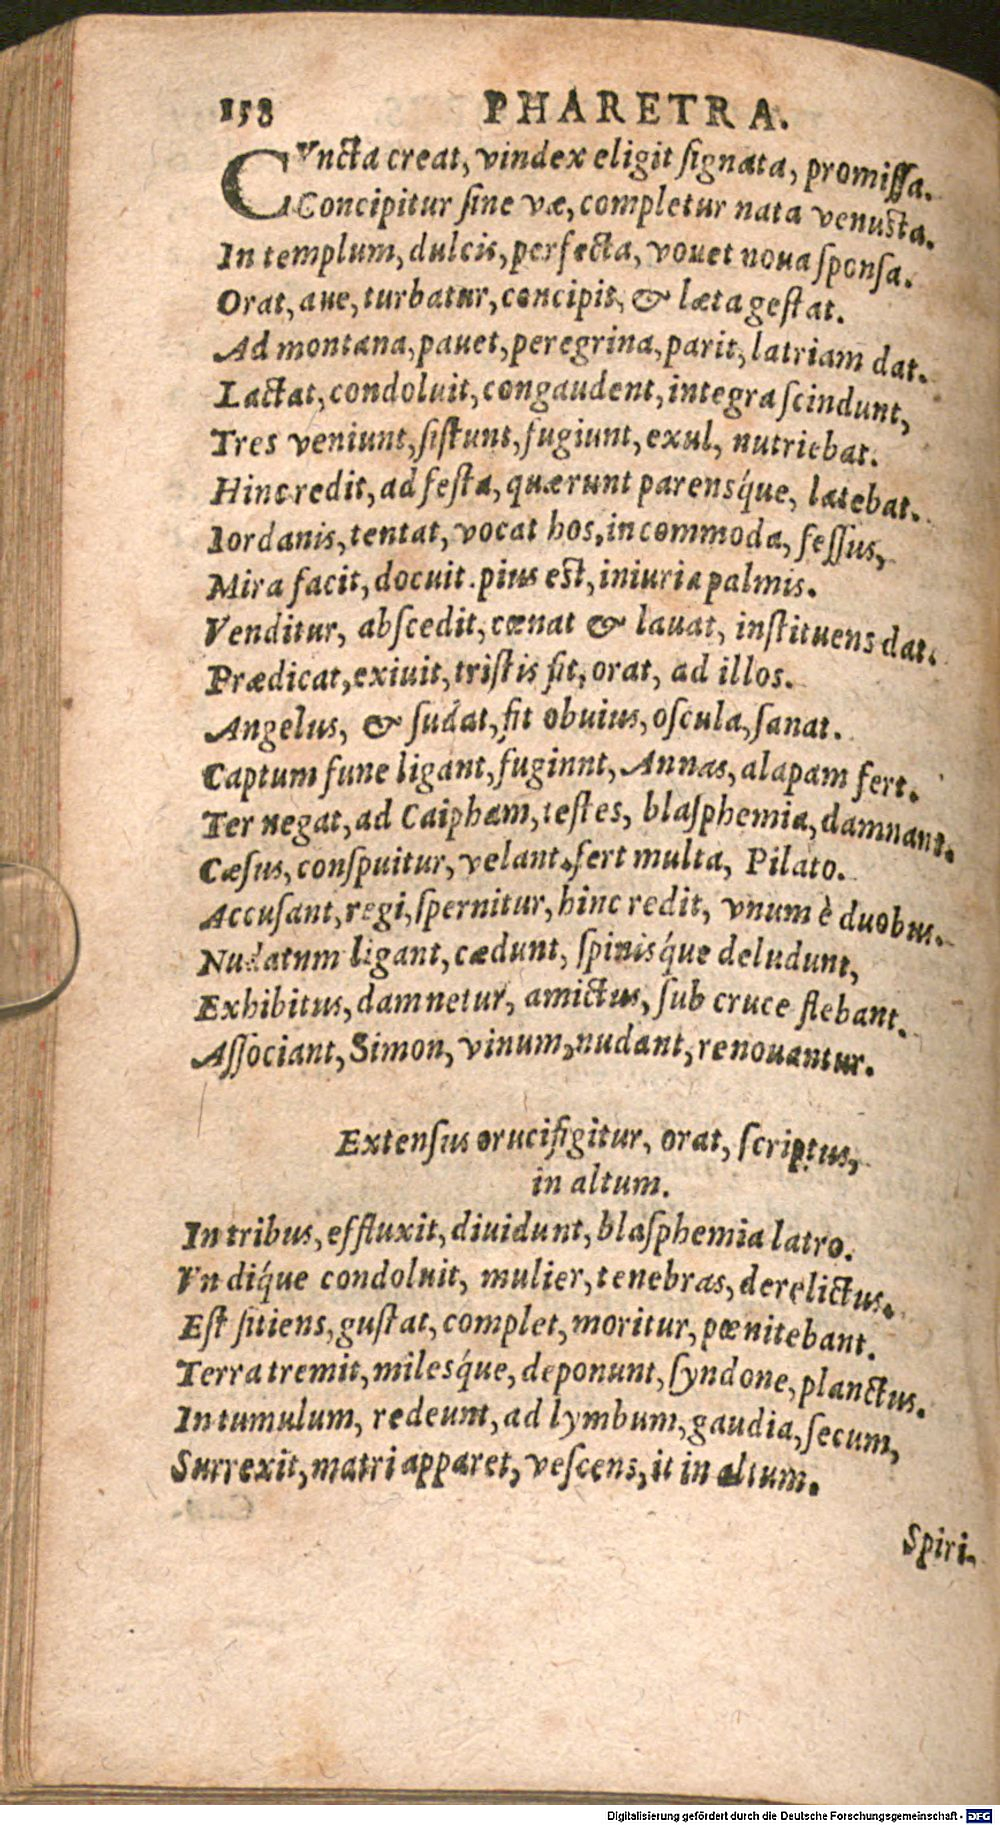 158 PHARETRA.
CVncta creat, vindex eligit ſignata, promiſſa.
Concipitur ſine væ, completur nata venuſta.
In templum, dulcis, perfecta, vouet noua ſponſa.
Orat, aue, turbatur, concipit, & læta geſtat.
Ad montana, pauet, peregrina, parit, latriam dat.
Lactat, condoluit, congaudent, integra ſcindunt,
Tres veniunt, ſiſtunt, fugiunt, exul, nutriebat.
Hinc redit, ad feſta, quærunt parensq́ue, latebat.
Iordanis, tentat, vocat hos, incommoda, feſſus,
Mira facit, docuit. pius eſt, iniuria palmis.
Venditur, abſcedit, cœnat & lauat, inſtituens dat.
Prædicat, exiuit, triſtis fit, orat, ad illos.
Angelus, & ſudat, fit obuius, oſcula, ſanat.
Captum fune ligant, fuginnt, Annas, alapam fert.
Ter negat, ad Caipham, teſtes, blaſphemia, damnant.
Cæſus, conſpuitur, velant. fert multa, Pilato.
Accuſant, regi, ſpernitur, hinc redit, vnum è duobus.
Nudatum ligant, cædunt, ſpinisq́ue deludunt,
Exhibitus, damnetur, amictus, ſub cruce flebant.
Aſſociant, Simon, vinum, nudant, renouantur.
Extenſus crucifigitur, orat, ſcriptus,
in altum.
In tribus, effluxit, diuidunt, blaſphemia latro.
Vndiq́ue condoluit, mulier, tenebras, derelictus.
Eſt ſitiens, guſtat, complet, moritur, pœnitebant.
Terra tremit, milesq́ue, deponunt, ſyndone, planctus.
In tumulum, redeunt, ad lymbum, gaudia, ſecum,
Surrexit, matri apparet, veſcens, it in altum.
Spiri-
Digitalisierung gefördert durch die Deutsche Forschungsgemeinschaft - DFG